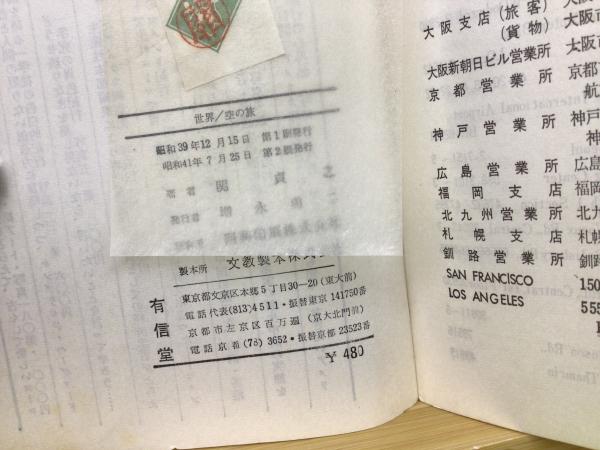 世界／空の旅
昭和39年12月15日 第1刷発行
昭和41年7月25日 第2刷発行
著者 関 貞之
発行者 増永勇
製本所 文教製本株式
有信堂
東京都文京区本郷5丁目30―20(東大前)
電話代表(813)4511・振替東京141750番
京都市左京区百万遍(京大北門前)
電話京都(78)3652・振替京都23523番
¥480
大阪支店(旅客) 大阪
(貨物) 大阪市
大阪新朝日ビル営業所 大阪市
京都営業所 京都
航
神戸営業所 神戸
神
広島営業所 広島
福岡支店 福岡
北九州営業所 北九
札幌支店 札幌
釧路営業所 釧路
SAN FRANCISCO 150
LOS ANGELES 555